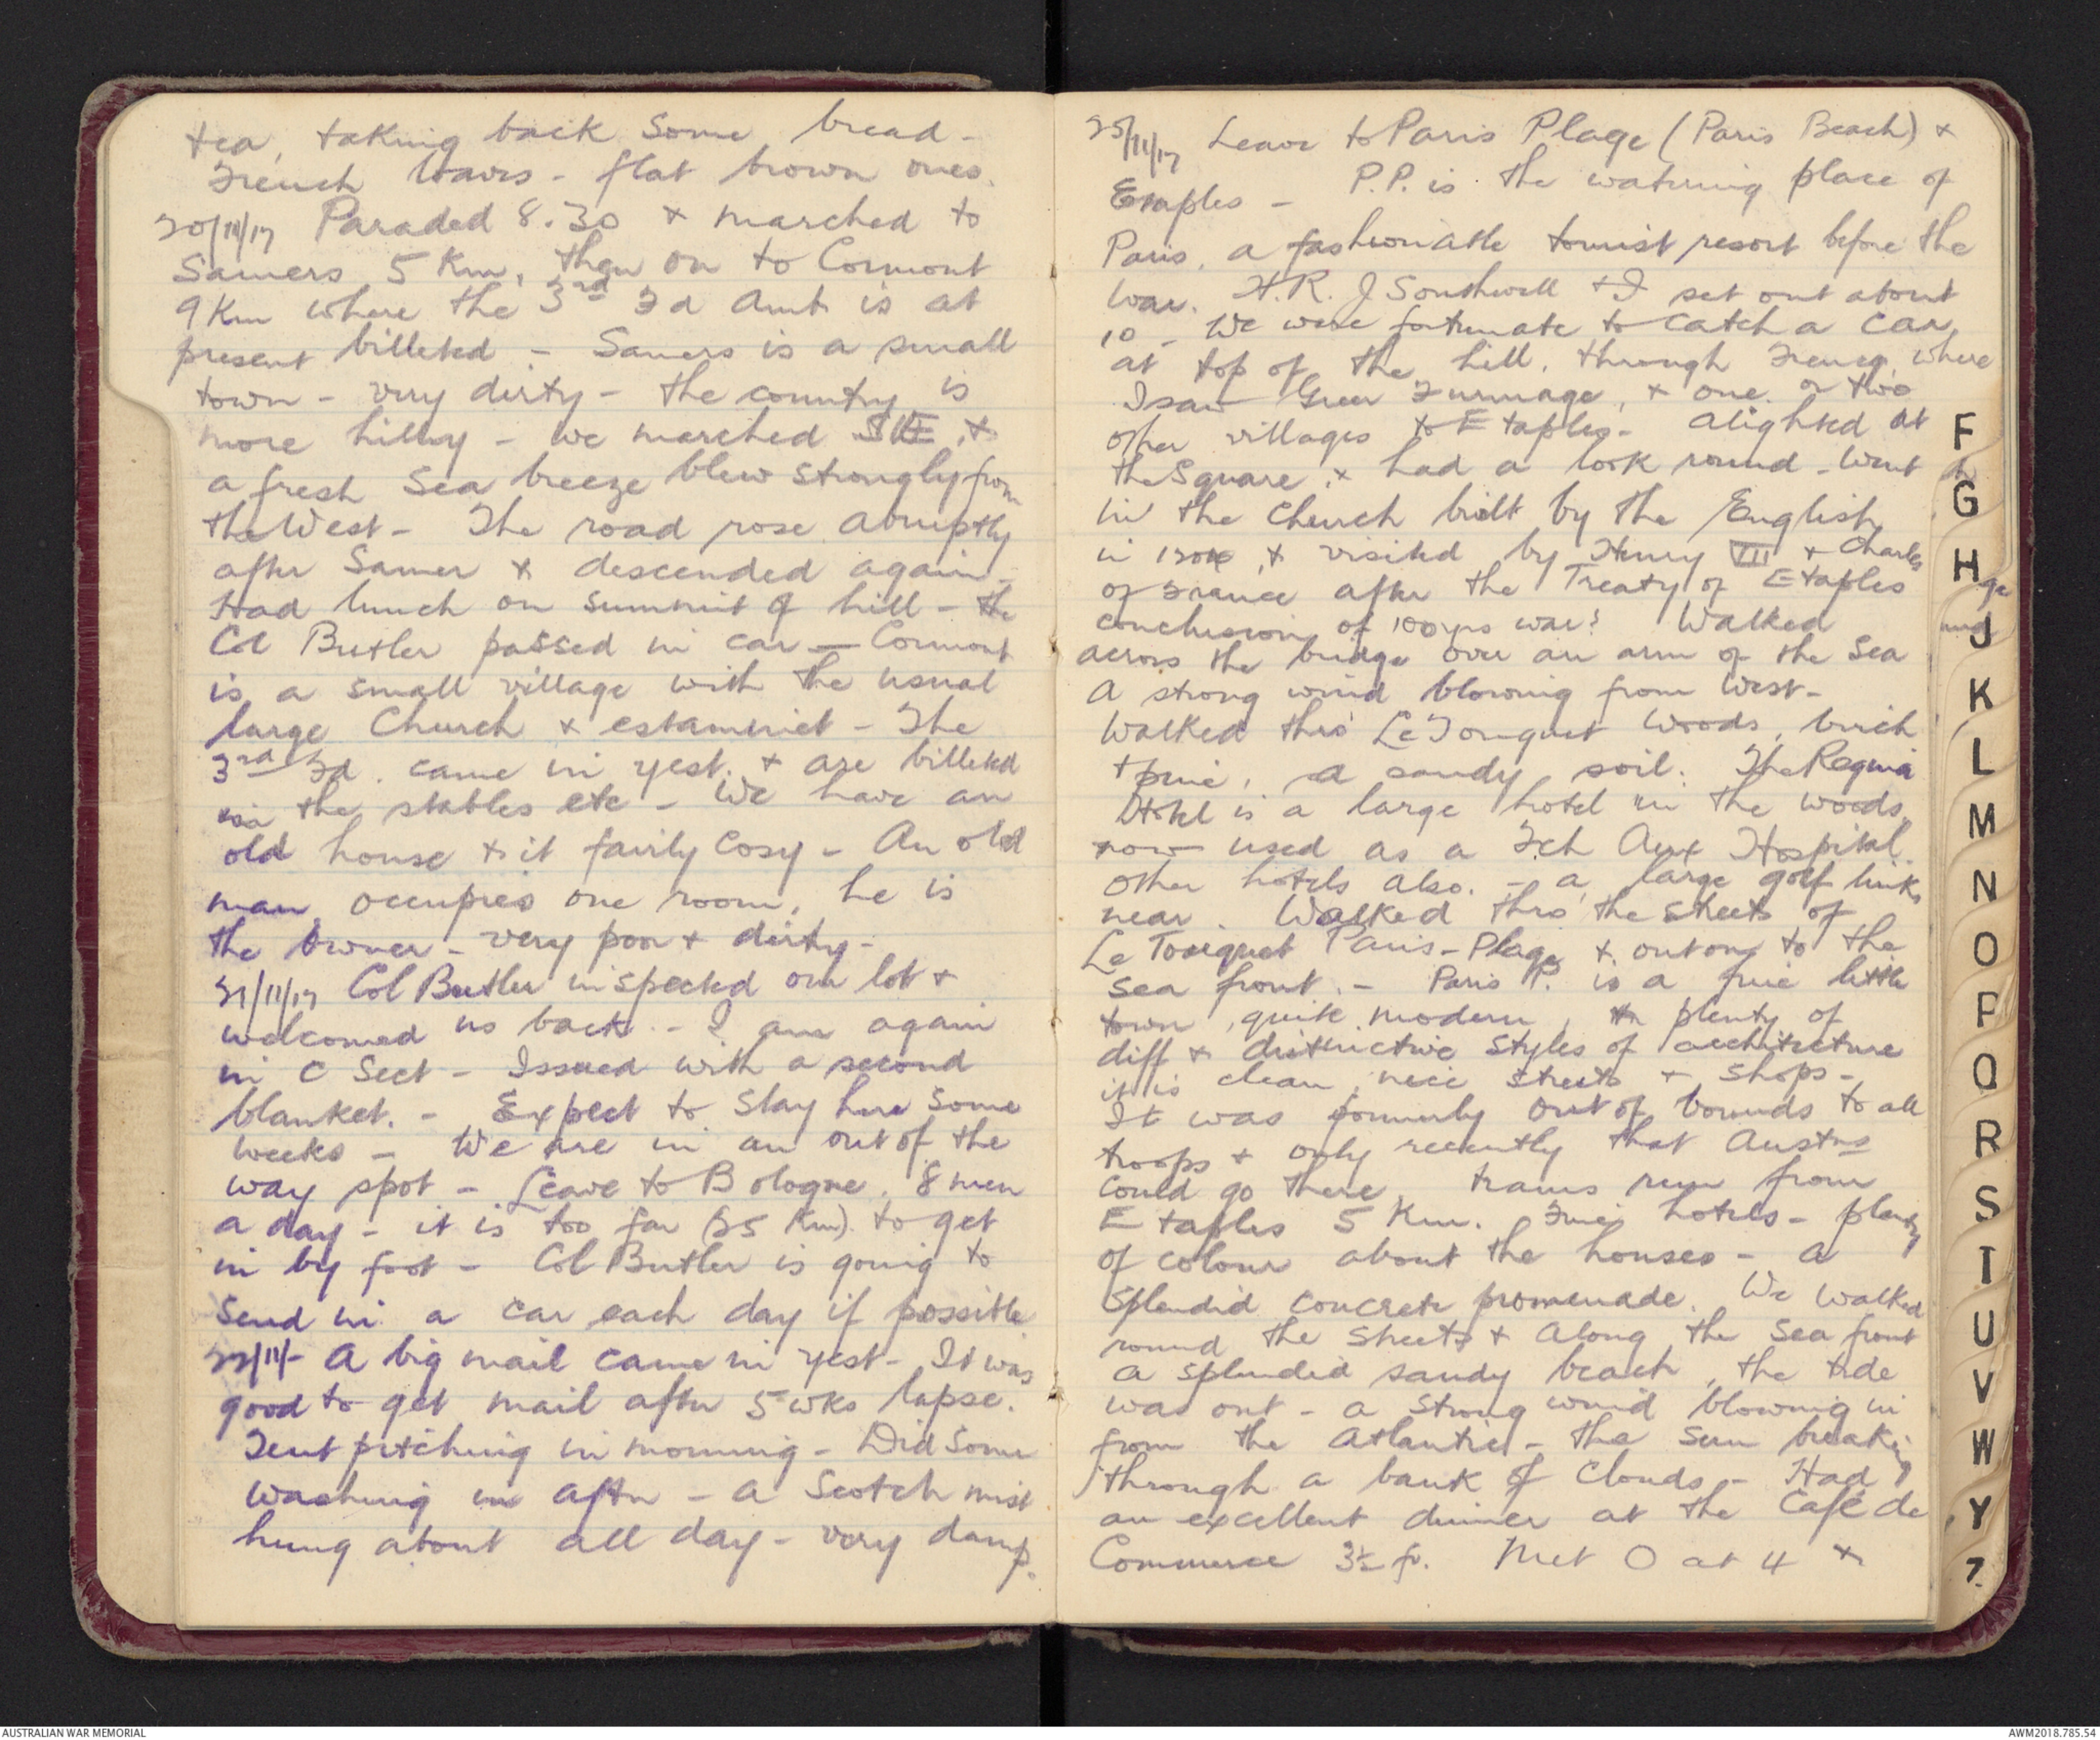 tea, taking back some bread -
French loaves - flat brown ones.
20/11/17 Paraded 8.30 & marched to
Samers 5 Km, then on to Cormont
9 Km where the 3rd Fd Amb is at
present billeted - Samers is a small
town - very dirty - the country is
more hilly - we marched &
a fresh sea breeze blew strongly from
the West - The road rose abruptly
after Samer & descended again -
Had lunch on summit of hill - the
Col Butler passed in car - Cormont
is a small village with the usual
large Church & estaminet - The
3rd Fd. came in yest. & are billeted
in the stables etc - We have an
old house & it fairly cosy - An old
man occupies one room, he is
the owner - very poor & dirty -
21/11/17 Col Butler inspected our lot &
welcomed us back - I am again
in C Sect - Issued with a second
blanket. - Expect to stay here some
weeks - We are in an out of the
way spot - Leave to Bologne, 8 men
a day - it is too far (25 Km) to get
in by foot - Col Butler is going to
send in a car each day if possible
22/11/- A big mail came in yest - It was
good to get mail after 5 wks lapse.
Tent pitching in morning - Did some
washing in aftn - a Scotch mist
hung about all day - very damp.
25/11/17 Leave to Paris Plage (Paris Beach) &
Etaples - P.P. is the watering place of
Paris, a fashionable tourist resort before the
War. H.R. J Southwell & I set out about
10 - We were fortunate to catch a car
at top of the hill, through Frencq, where
I saw Greer Furmage, & one or two
other villages to Etaples - Alighted at
the Square, & had a look round - Went
in the Church built by the English
in & visited by Henry VII & Charles
of France after the Treaty of Etaples
conclusion of 100 yrs war? Walked
across the bridge over an arm of the Sea
A strong wind blowing from West -
Walked thro' Le Touquet Woods, birch
& pine, a sandy soil. The Regina
Hotel is a large hotel in the woods,
now used as a Fch Aux Hospital.
Other hotels also. - a large golf links
near. Walked thro' the streets of
Le Touquet Paris-Plage & out on to the
sea front. - Paris P. is a fine little
town, quite modern, plenty of
diff & distinctive styles of architecture
it is clean, nice streets & shops -
It was formerly out of bounds to all
troops & only recently that Austns
could go there, trams run from
Etaples 5 Km. Fine hotels - plenty
of colour about the houses - A
splendid concrete promenade. We walked
round the streets & along the sea front
a splendid sandy beach, the tide
was out - a strong wind blowing in
from the Atlantic - the sun breaking
through a bank of clouds - Had
an excellent dinner at the Café de
Commerce 3½ fr. Met O at 4 &
F
G
H
J
K
L
M
N
O
P
Q
R
S
T
U
V
W
Y
Z
AUSTRALIAN WAR MEMORIAL
AWM2018.785.54